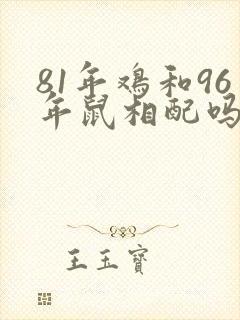 81年鸡和96
年鼠相配吗
王玉宝